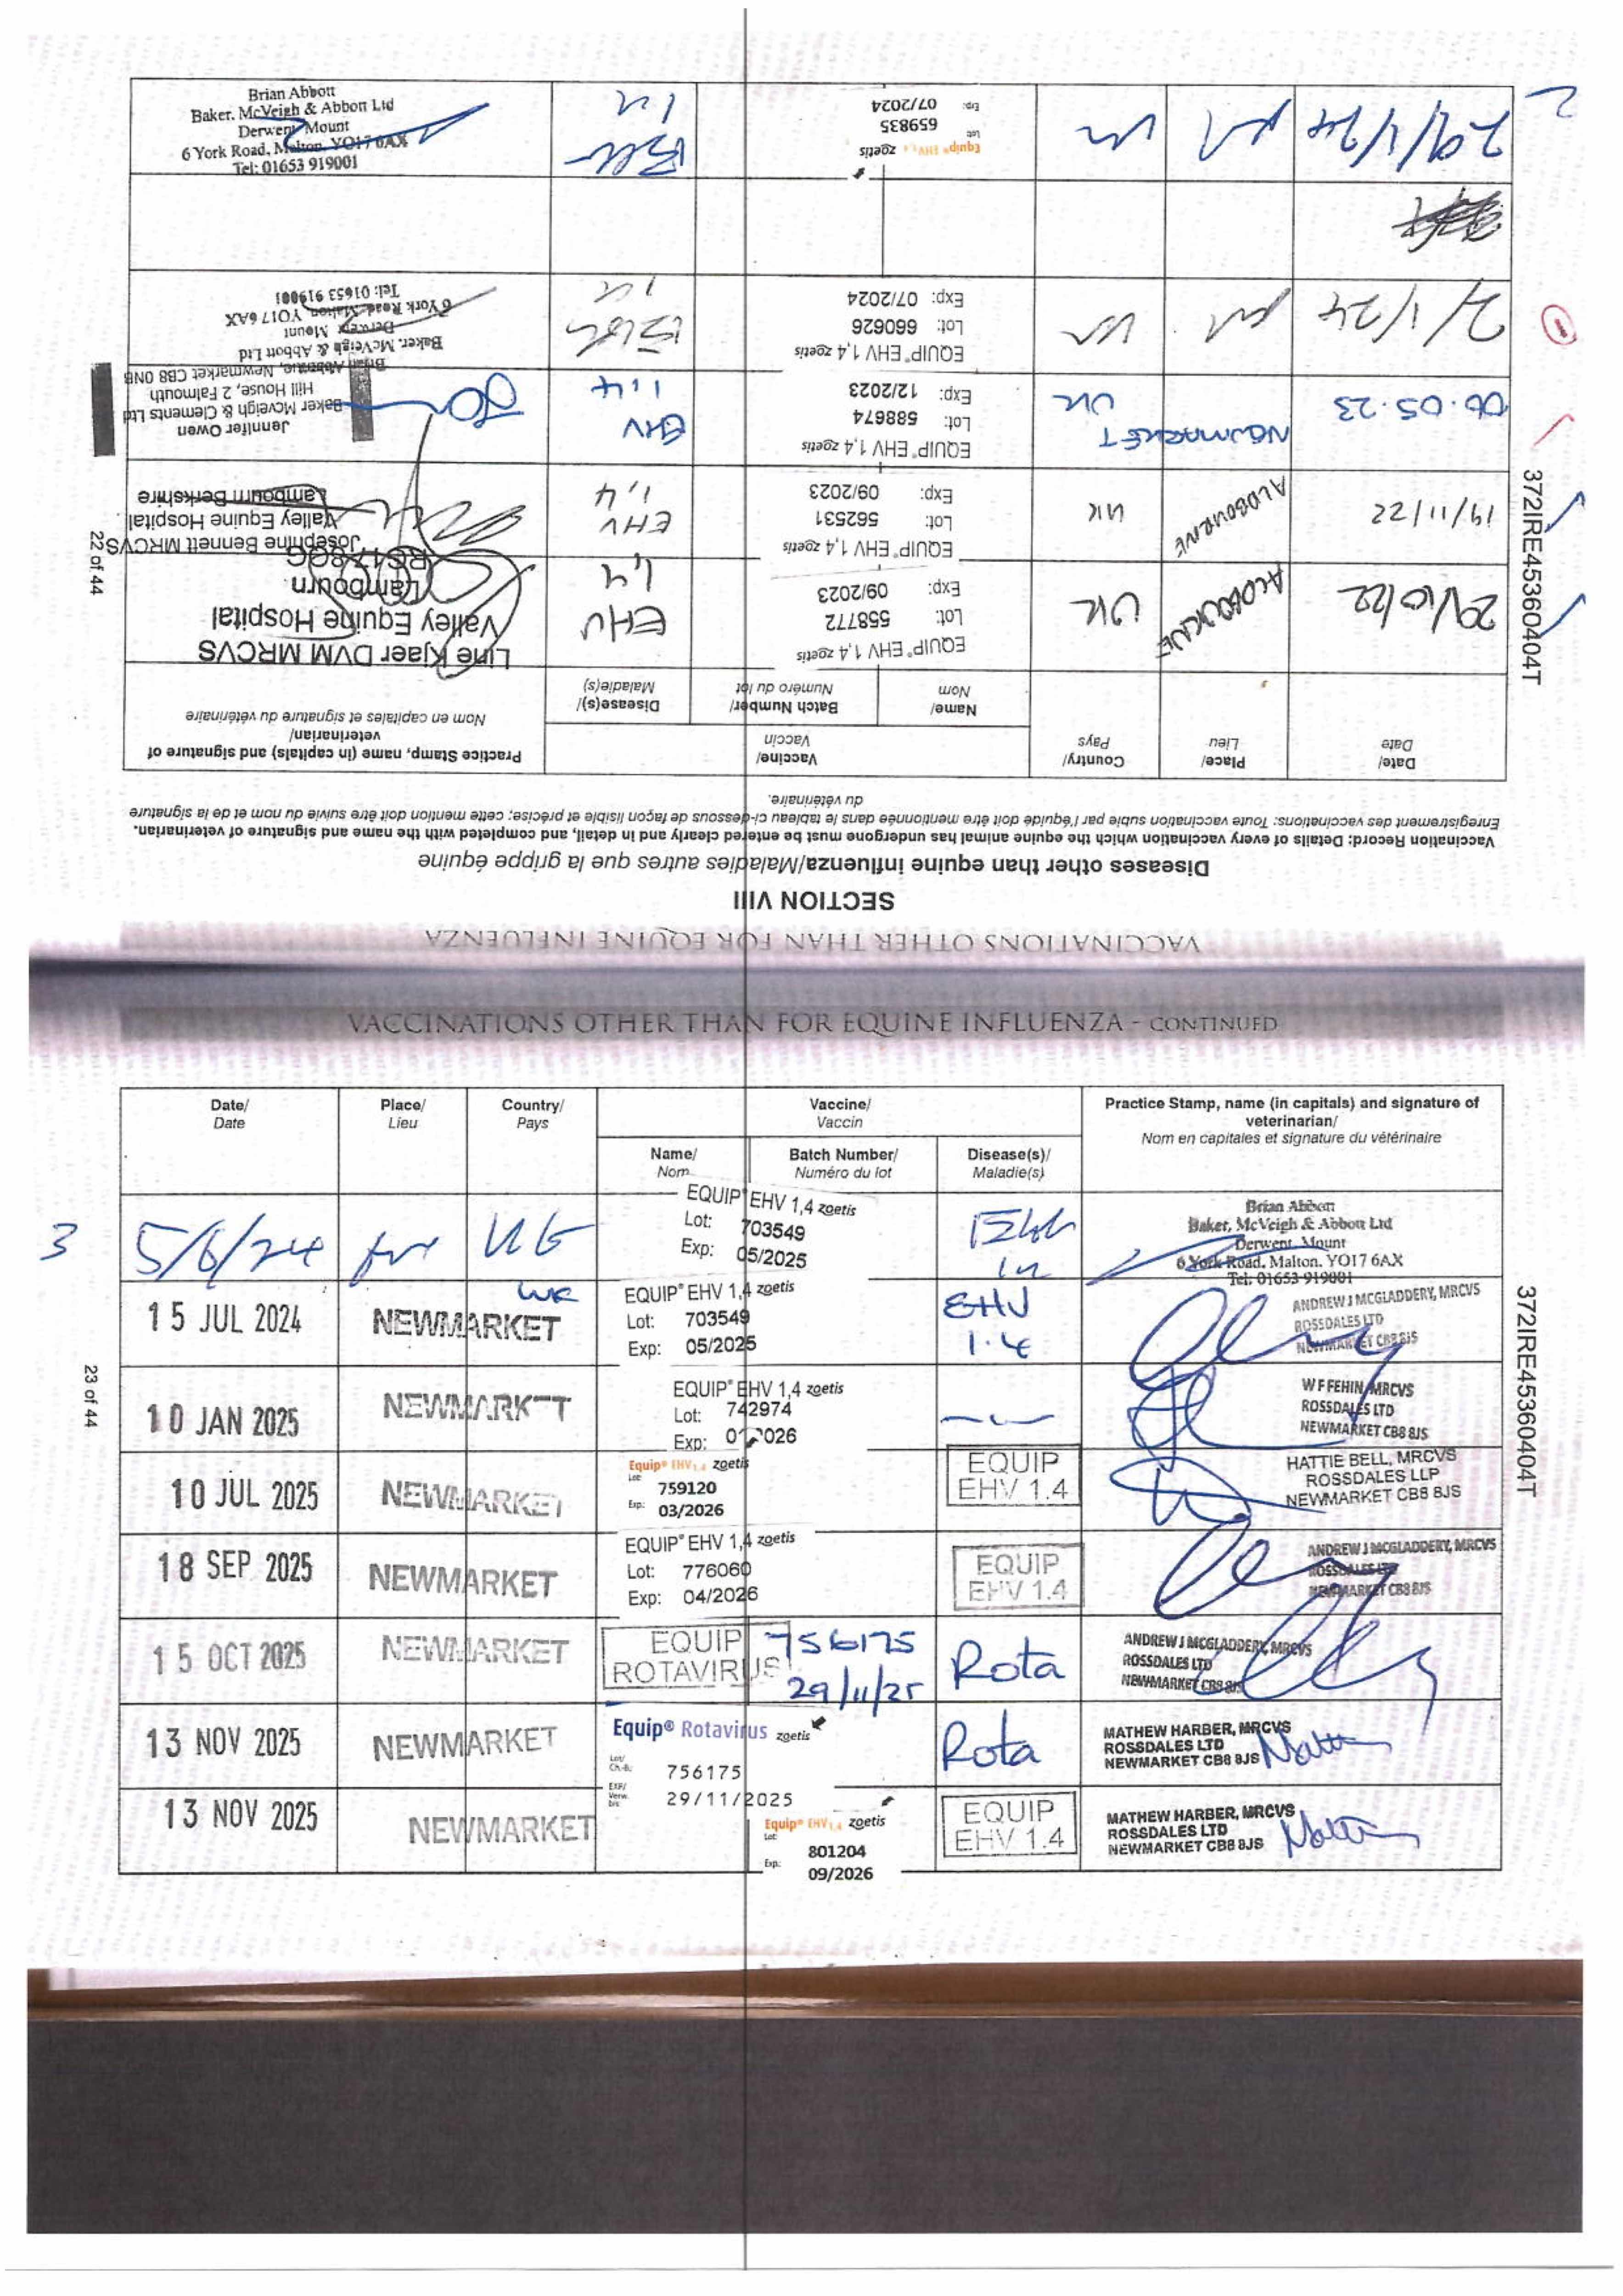 VACCINATIONS OTHER THAN FOR EQUINE INFLUENZA
SECTION VIII
Diseases other than equine influenza/Maladies autres que la grippe équine
Vaccination Record: Details of every vaccination which the equine animal has undergone must be entered clearly and in detail, and completed with the name and signature of veterinarian.
Enregistrement des vaccinations: Toute vaccination subie par l'équidé doit être mentionnée dans le tableau ci-dessous de façon lisible et précise; cette mention doit être suivie du nom et de la signature
du vétérinaire.
Date/
Date
Place/
Lieu
Country/
Pays
Vaccine/
Vaccin
Practice Stamp, name (in capitals) and signature of
veterinarian/
Nom en capitales et signature du vétérinaire
Name/
Nom
Batch Number/
Numéro du lot
Disease(s)/
Maladie(s)
29/10/22
ALDBOURNE
UK
EQUIP® EHV 1,4 zoetis
Lot: 558772
Exp: 09/2023
EHV
1,4
Line Kjaer DVM MRCVS
Valley Equine Hospital
Lambourn
RG17 8QG
19/11/22
ALDBOURNE
UK
EQUIP® EHV 1,4 zoetis
Lot: 562531
Exp: 09/2023
EHV
1,4
Josephine Bennett MRCVS
Valley Equine Hospital
Lambourn Berkshire
06.05.23
NEWMARKET
UK
EQUIP® EHV 1,4 zoetis
Lot: 588674
Exp: 12/2023
EHV
1,4
Jennifer Owen
Baker Mcveigh & Clements Ltd
Hill House, 2 Falmouth
Newmarket CB8 0NB
1
2/1/24
EQUIP® EHV 1,4 zoetis
Lot: 660626
Exp: 07/2024
Brian Abbott
Baker, McVeigh & Abbott Ltd
Derwent Mount
6 York Road, Malton, YO17 6AX
Tel: 01653 919001
2
29/1/24
Equip® EHV 1,4 zoetis
Lot: 659835
Exp: 07/2024
Brian Abbott
Baker, McVeigh & Abbott Ltd
Derwent Mount
6 York Road, Malton, YO17 6AX
Tel: 01653 919001
22 of 44
372IRE45360404T
VACCINATIONS OTHER THAN FOR EQUINE INFLUENZA - CONTINUED
Date/
Date
Place/
Lieu
Country/
Pays
Vaccine/
Vaccin
Practice Stamp, name (in capitals) and signature of
veterinarian/
Nom en capitales et signature du vétérinaire
Name/
Nom
Batch Number/
Numéro du lot
Disease(s)/
Maladie(s)
3
5/6/24
EQUIP® EHV 1,4 zoetis
Lot: 703549
Exp: 05/2025
Brian Abbott
Baker, McVeigh & Abbott Ltd
Derwent Mount
6 York Road, Malton. YO17 6AX
Tel: 01653 919001
15 JUL 2024
NEWMARKET
UK
EQUIP® EHV 1,4 zoetis
Lot: 703549
Exp: 05/2025
EHV
1.4
ANDREW J MCGLADDERY, MRCVS
ROSSDALES LTD
NEWMARKET CB8 8JS
10 JAN 2025
NEWMARKET
EQUIP® EHV 1,4 zoetis
Lot: 742974
Exp:
W F FEHIN, MRCVS
ROSSDALES LTD
NEWMARKET CB8 8JS
10 JUL 2025
NEWMARKET
Equip® EHV 1,4 zoetis
Lot: 759120
Exp: 03/2026
EQUIP
EHV 1.4
HATTIE BELL, MRCVS
ROSSDALES LLP
NEWMARKET CB8 8JS
18 SEP 2025
NEWMARKET
EQUIP® EHV 1,4 zoetis
Lot: 776060
Exp: 04/2026
EQUIP
EHV 1.4
ANDREW J MCGLADDERY, MRCVS
ROSSDALES LTD
NEWMARKET CB8 8JS
15 OCT 2025
NEWMARKET
EQUIP
ROTAVIRUS
756175
29/11/25
Rota
ANDREW J MCGLADDERY, MRCVS
ROSSDALES LTD
NEWMARKET CB8 8JS
13 NOV 2025
NEWMARKET
Equip® Rotavirus zoetis
Lot/
Ch.-B.: 756175
EXP/
Verw.
bis: 29/11/2025
Rota
MATHEW HARBER, MRCVS
ROSSDALES LTD
NEWMARKET CB8 8JS
13 NOV 2025
NEWMARKET
Equip® EHV 1,4 zoetis
Lot: 801204
Exp: 09/2026
EQUIP
EHV 1.4
MATHEW HARBER, MRCVS
ROSSDALES LTD
NEWMARKET CB8 8JS
23 of 44
372IRE45360404T